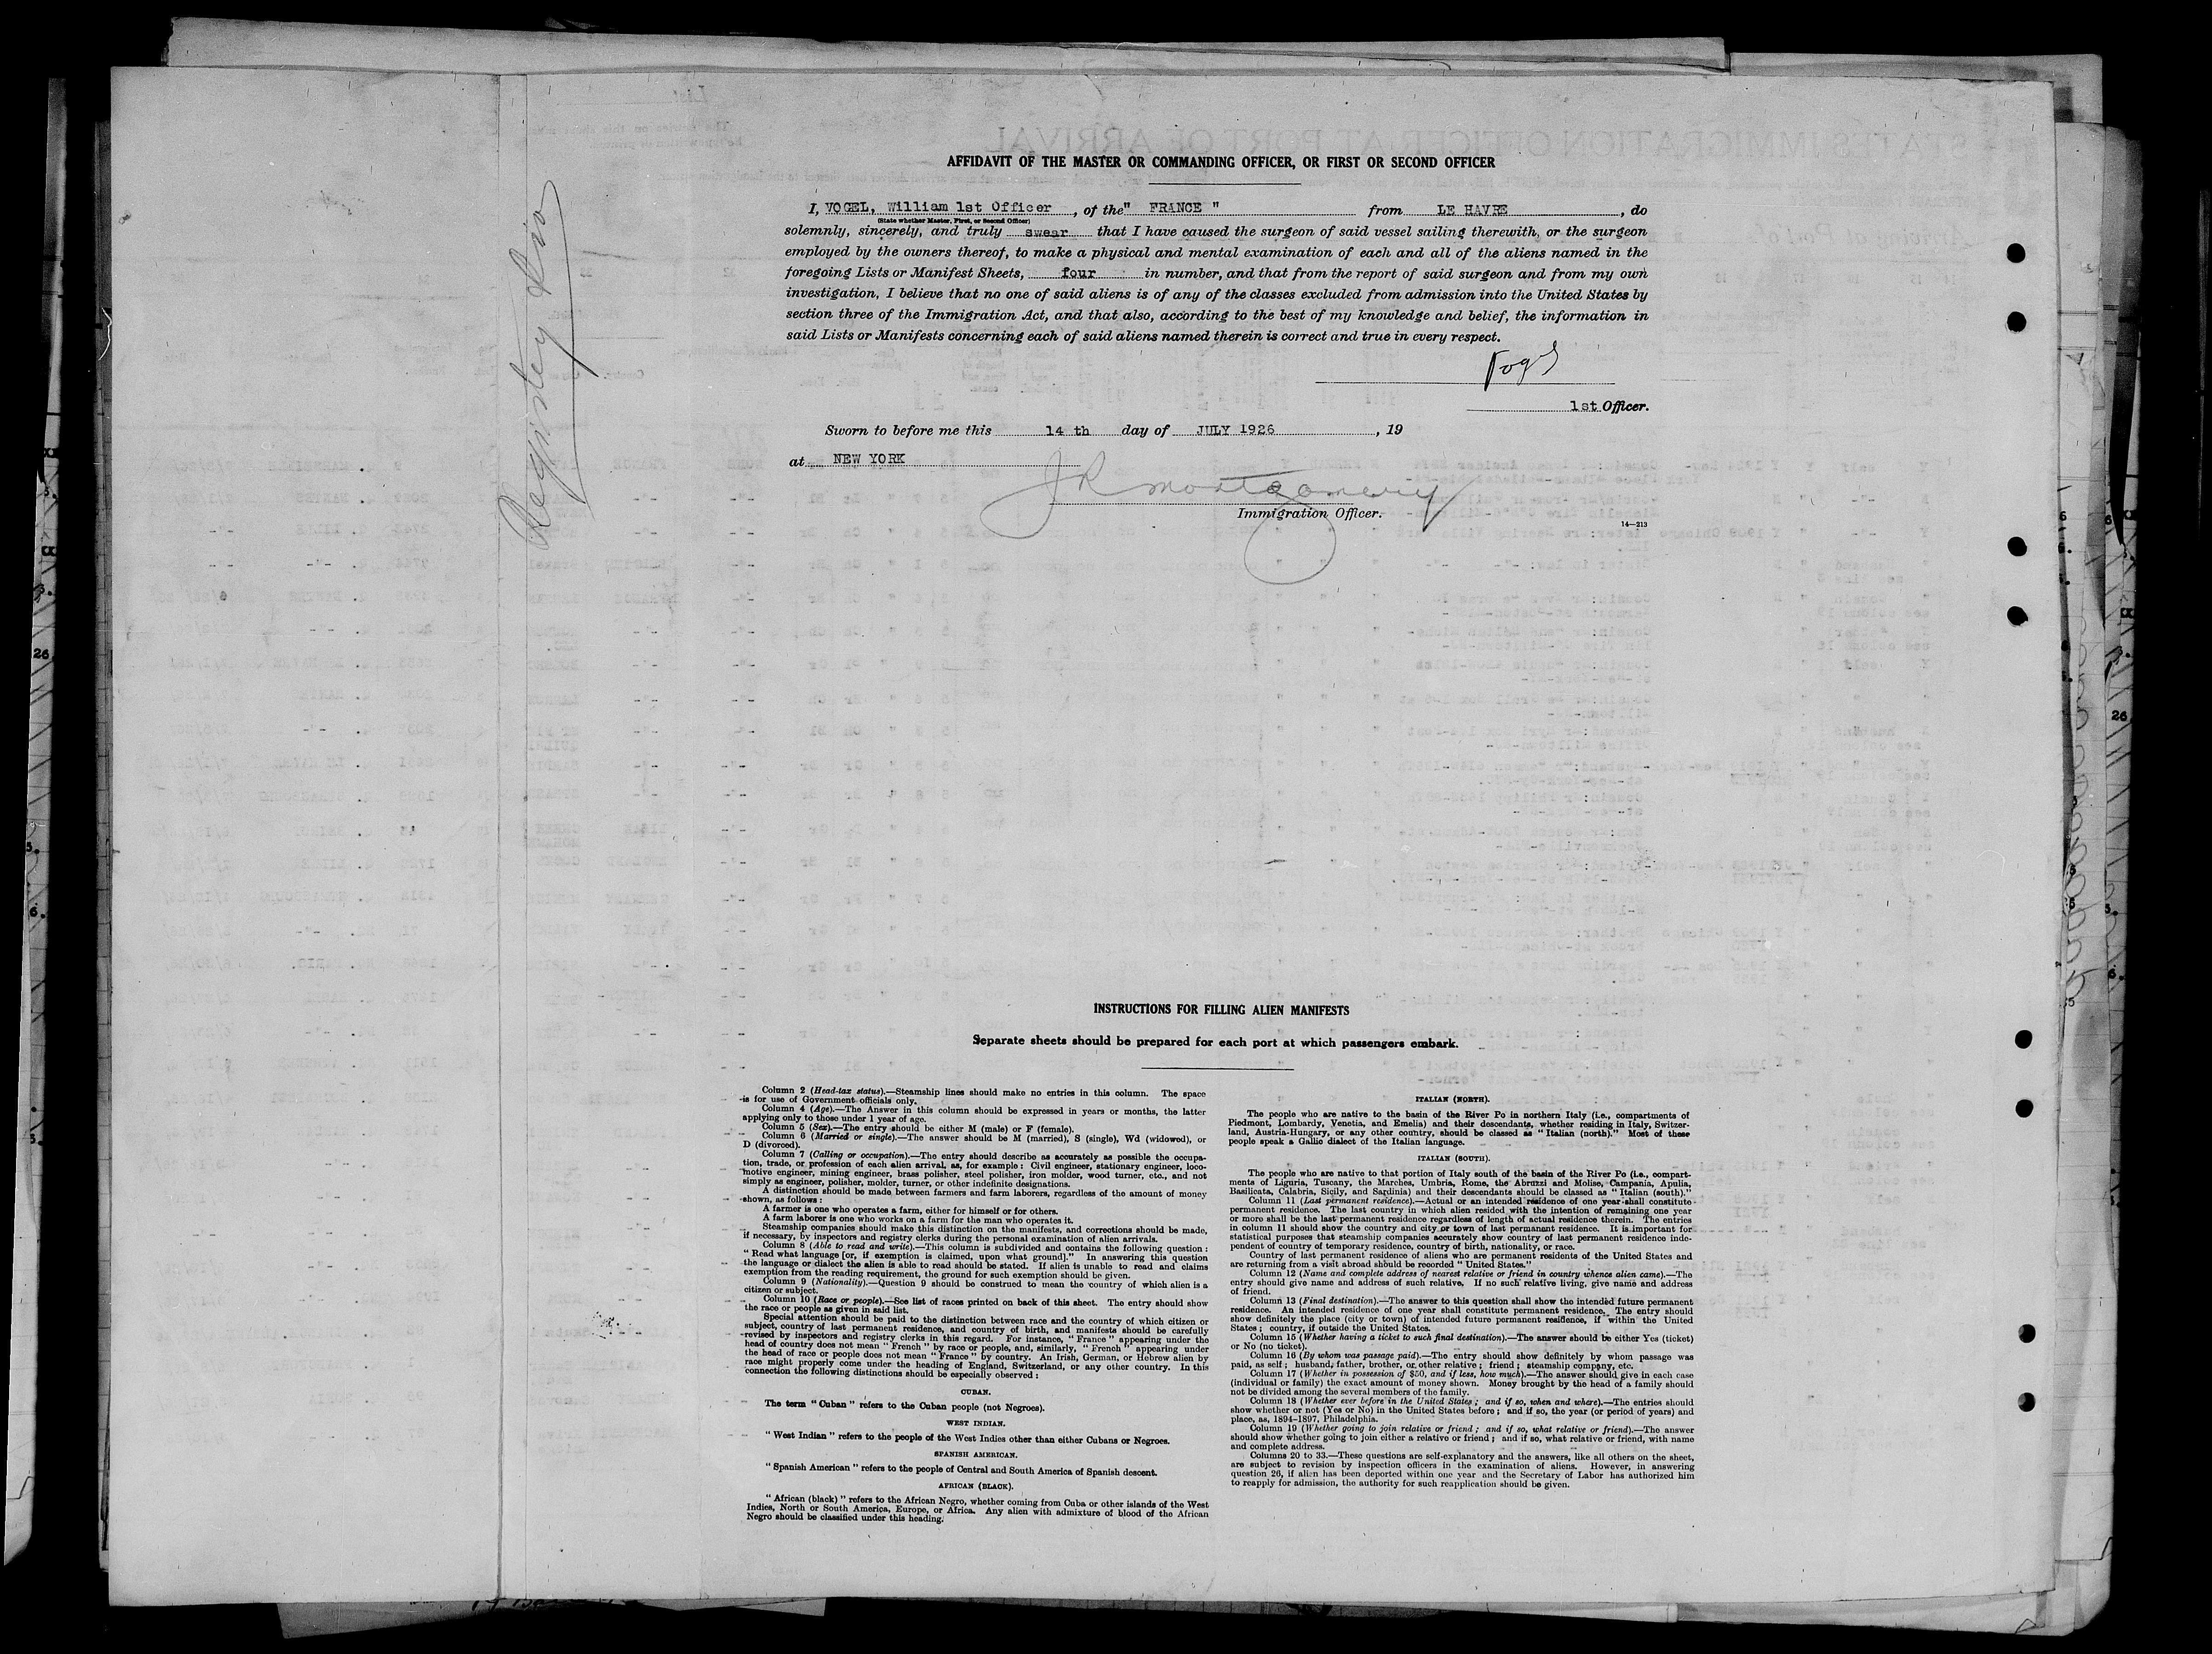 AFFIDAVIT OF THE MASTER OR COMMANDING OFFICER, OR FIRST OR SECOND OFFICER
I, VOGEL, William 1st Officer, of the " FRANCE " from LE HAVRE, do
(State whether Master, First, or Second Officer)
solemnly, sincerely, and truly swear that I have caused the surgeon of said vessel sailing therewith, or the surgeon
employed by the owners thereof, to make a physical and mental examination of each and all of the aliens named in the
foregoing Lists or Manifest Sheets, four in number, and that from the report of said surgeon and from my own
investigation, I believe that no one of said aliens is of any of the classes excluded from admission into the United States by
section three of the Immigration Act, and that also, according to the best of my knowledge and belief, the information in
said Lists or Manifests concerning each of said aliens named therein is correct and true in every respect.
Vogel
1st Officer.
Sworn to before me this 14 th day of JULY 1926, 19
at NEW YORK
J R Montgomery
Immigration Officer.
14—213
Registry Div
INSTRUCTIONS FOR FILLING ALIEN MANIFESTS
Separate sheets should be prepared for each port at which passengers embark.
Column 2 (Head-tax status).—Steamship lines should make no entries in this column. The space
is for use of Government officials only.
Column 4 (Age).—The Answer in this column should be expressed in years or months, the latter
applying only to those under 1 year of age.
Column 5 (Sex).—The entry should be either M (male) or F (female).
Column 6 (Married or single).—The answer should be M (married), S (single), Wd (widowed), or
D (divorced).
Column 7 (Calling or occupation).—The entry should describe as accurately as possible the occupa-
tion, trade, or profession of each alien arrival, as, for example: Civil engineer, stationary engineer, loco-
motive engineer, mining engineer, brass polisher, steel polisher, iron molder, wood turner, etc., and not
simply as engineer, polisher, molder, turner, or other indefinite designations.
A distinction should be made between farmers and farm laborers, regardless of the amount of money
shown, as follows:
A farmer is one who operates a farm, either for himself or for others.
A farm laborer is one who works on a farm for the man who operates it.
Steamship companies should make this distinction on the manifests, and corrections should be made,
if necessary, by inspectors and registry clerks during the personal examination of alien arrivals.
Column 8 (Able to read and write).—This column is subdivided and contains the following question:
" Read what language [or, if exemption is claimed, upon what ground]." In answering this question
the language or dialect the alien is able to read should be stated. If alien is unable to read and claims
exemption from the reading requirement, the ground for such exemption should be given.
Column 9 (Nationality).—Question 9 should be construed to mean the country of which alien is a
citizen or subject.
Column 10 (Race or people).—See list of races printed on back of this sheet. The entry should show
the race or people as given in said list.
Special attention should be paid to the distinction between race and the country of which citizen or
subject, country of last permanent residence, and country of birth, and manifests should be carefully
revised by inspectors and registry clerks in this regard. For instance, " France " appearing under the
head of country does not mean " French " by race or people, and, similarly, " French " appearing under
the head of race or people does not mean " France " by country. An Irish, German, or Hebrew alien by
race might properly come under the heading of England, Switzerland, or any other country. In this
connection the following distinctions should be especially observed:
CUBAN.
The term " Cuban " refers to the Cuban people (not Negroes).
WEST INDIAN.
" West Indian " refers to the people of the West Indies other than either Cubans or Negroes.
SPANISH AMERICAN.
" Spanish American " refers to the people of Central and South America of Spanish descent.
AFRICAN (BLACK).
" African (black) " refers to the African Negro, whether coming from Cuba or other islands of the West
Indies, North or South America, Europe, or Africa. Any alien with admixture of blood of the African
Negro should be classified under this heading.
ITALIAN (NORTH).
The people who are native to the basin of the River Po in northern Italy (i.e., compartments of
Piedmont, Lombardy, Venetia, and Emelia) and their descendants, whether residing in Italy, Switzer-
land, Austria-Hungary, or any other country, should be classed as " Italian (north)." Most of these
people speak a Gallic dialect of the Italian language.
ITALIAN (SOUTH).
The people who are native to that portion of Italy south of the basin of the River Po (i.e., compart-
ments of Liguria, Tuscany, the Marches, Umbria, Rome, the Abruzzi and Molise, Campania, Apulia,
Basilicata, Calabria, Sicily, and Sardinia) and their descendants should be classed as " Italian (south)."
Column 11 (Last permanent residence).—Actual or an intended residence of one year shall constitute
permanent residence. The last country in which alien resided with the intention of remaining one year
or more shall be the last permanent residence regardless of length of actual residence therein. The entries
in column 11 should show the country and city or town of last permanent residence. It is important for
statistical purposes that steamship companies accurately show country of last permanent residence inde-
pendent of country of temporary residence, country of birth, nationality, or race.
Country of last permanent residence of aliens who are permanent residents of the United States and
are returning from a visit abroad should be recorded " United States."
Column 12 (Name and complete address of nearest relative or friend in country whence alien came).—The
entry should give name and address of such relative. If no such relative living, give name and address
of friend.
Column 13 (Final destination).—The answer to this question shall show the intended future permanent
residence. An intended residence of one year shall constitute permanent residence. The entry should
show definitely the place (city or town) of intended future permanent residence, if within the United
States; country, if outside the United States.
Column 15 (Whether having a ticket to such final destination).—The answer should be either Yes (ticket)
or No (no ticket).
Column 16 (By whom was passage paid).—The entry should show definitely by whom passage was
paid, as self; husband, father, brother, or other relative; friend; steamship company, etc.
Column 17 (Whether in possession of $50, and if less, how much).—The answer should give in each case
(individual or family) the exact amount of money shown. Money brought by the head of a family should
not be divided among the several members of the family.
Column 18 (Whether ever before in the United States; and if so, when and where).—The entries should
show whether or not (Yes or No) in the United States before; and if so, the year (or period of years) and
place, as, 1894–1897, Philadelphia.
Column 19 (Whether going to join relative or friend; and if so, what relative or friend).—The answer
should show whether going to join either a relative or friend; and if so, what relative or friend, with name
and complete address.
Columns 20 to 33.—These questions are self-explanatory and the answers, like all others on the sheet,
are subject to revision by inspection officers in the examination of aliens. However, in answering
question 26, if alien has been deported within one year and the Secretary of Labor has authorized him
to reapply for admission, the authority for such reapplication should be given.